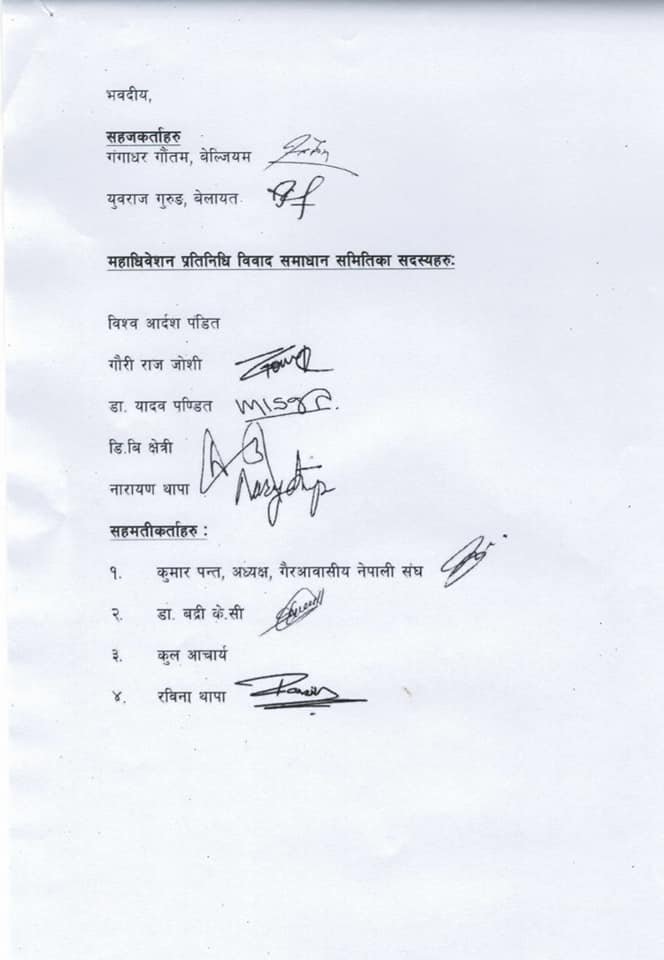 भवदीय,
सहजकर्ताहरु
गंगाधर गौतम, बेल्जियम
युवराज गुरुङ, बेलायत
महाधिवेशन प्रतिनिधि विवाद समाधान समितिका सदस्यहरु:
विश्व आर्दश पंडित
गौरी राज जोशी
डा. यादव पण्डित
डि.बि क्षेत्री
नारायण थापा
सहमतीकर्ताहरु :
१. कुमार पन्त, अध्यक्ष, गैरआवासीय नेपाली संघ
२. डा. बद्री के.सी
३. कुल आचार्य
४. रविना थापा